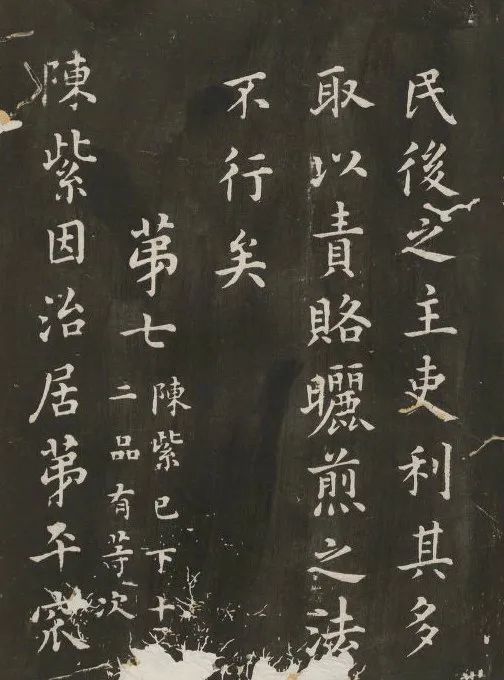 民後之主吏利其多
取以責賂曬煎之法
不行矣
第七
陳紫已下十
二品有等次
陳紫因治居第平窊